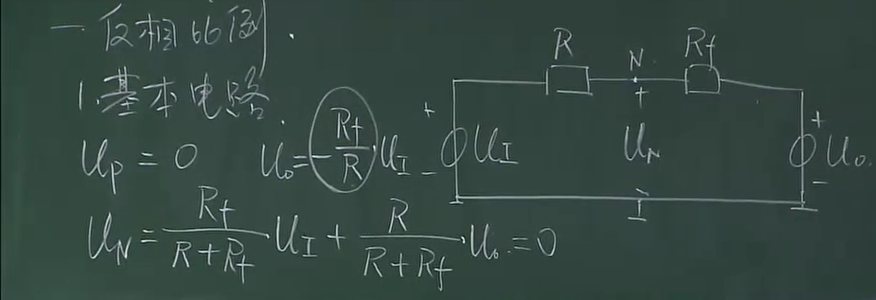 一.反相比例.
1.基本电路
U_P = 0  U_o = -\frac{R_f}{R} U_I
U_N = \frac{R_f}{R+R_f} · U_I + \frac{R}{R+R_f} · U_o = 0
R  N  R_f
+  +  +
U_I  U_N  U_o
-  -  -